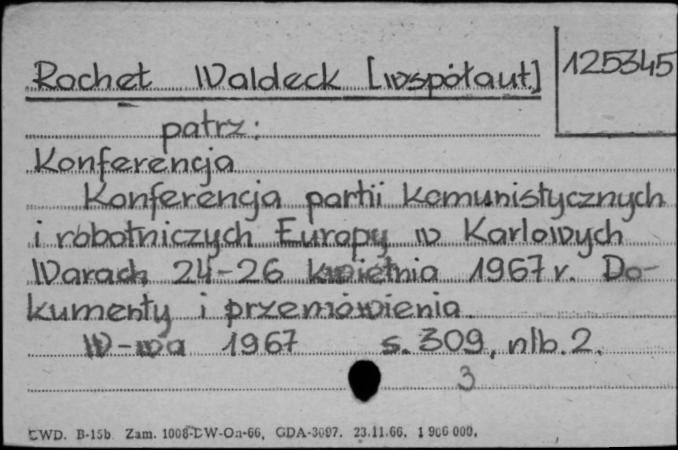 Rochet Waldeck [współaut.]
125345
patrz:
Konferencja
Konferencja partii komunistycznych
i robotniczych Europy w Karlowych
Warach 24-26 kwietnia 1967 r. Do-
kumenty i przemówienia.
W-wa 1967 s. 309, nlb. 2.
3
CWD. B-15b. Zam. 1008-DW-On-66, GDA-3097. 23.11.66. 1 906 000.